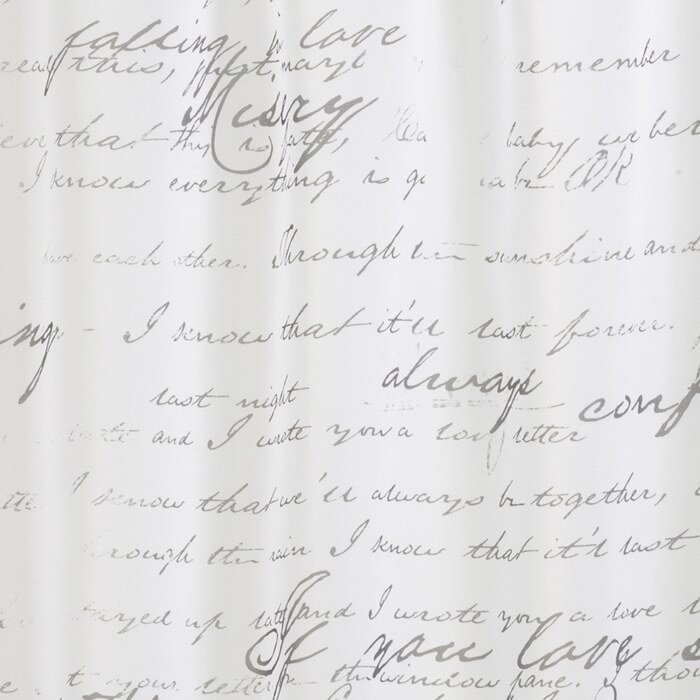 falling in love
read this, just maybe remember
Misery
ever that this is fate, baby, we be
I know everything is go be OK
love each other. Through the sunshine and
ing - I know that it'll last forever.
always
last night
conf
and I wrote you a love letter
I know that we'll always be together,
through the rain I know that it'll last
stayed up late and I wrote you a love
If you love s
t your letter the window pane. I tho